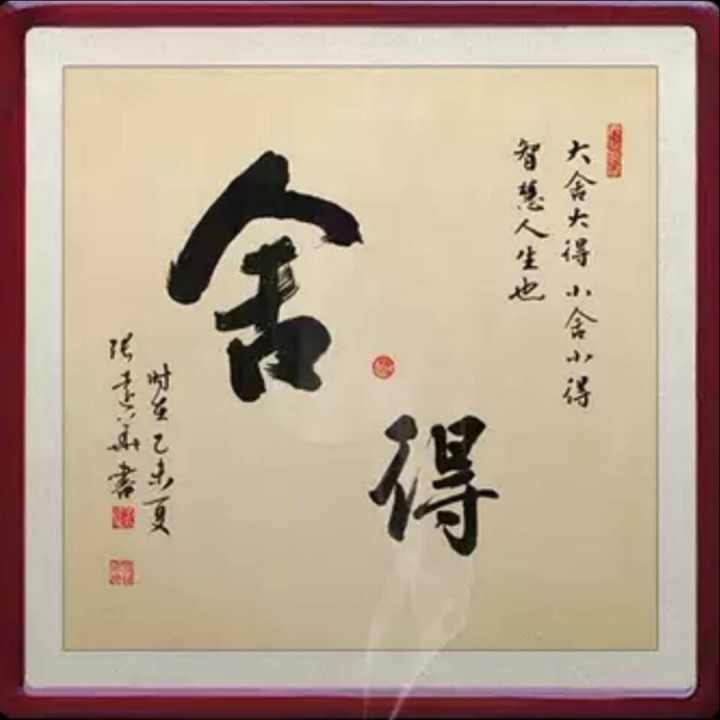 大舍大得小舍小得
智慧人生也
舍得
时在乙未夏
张建华書